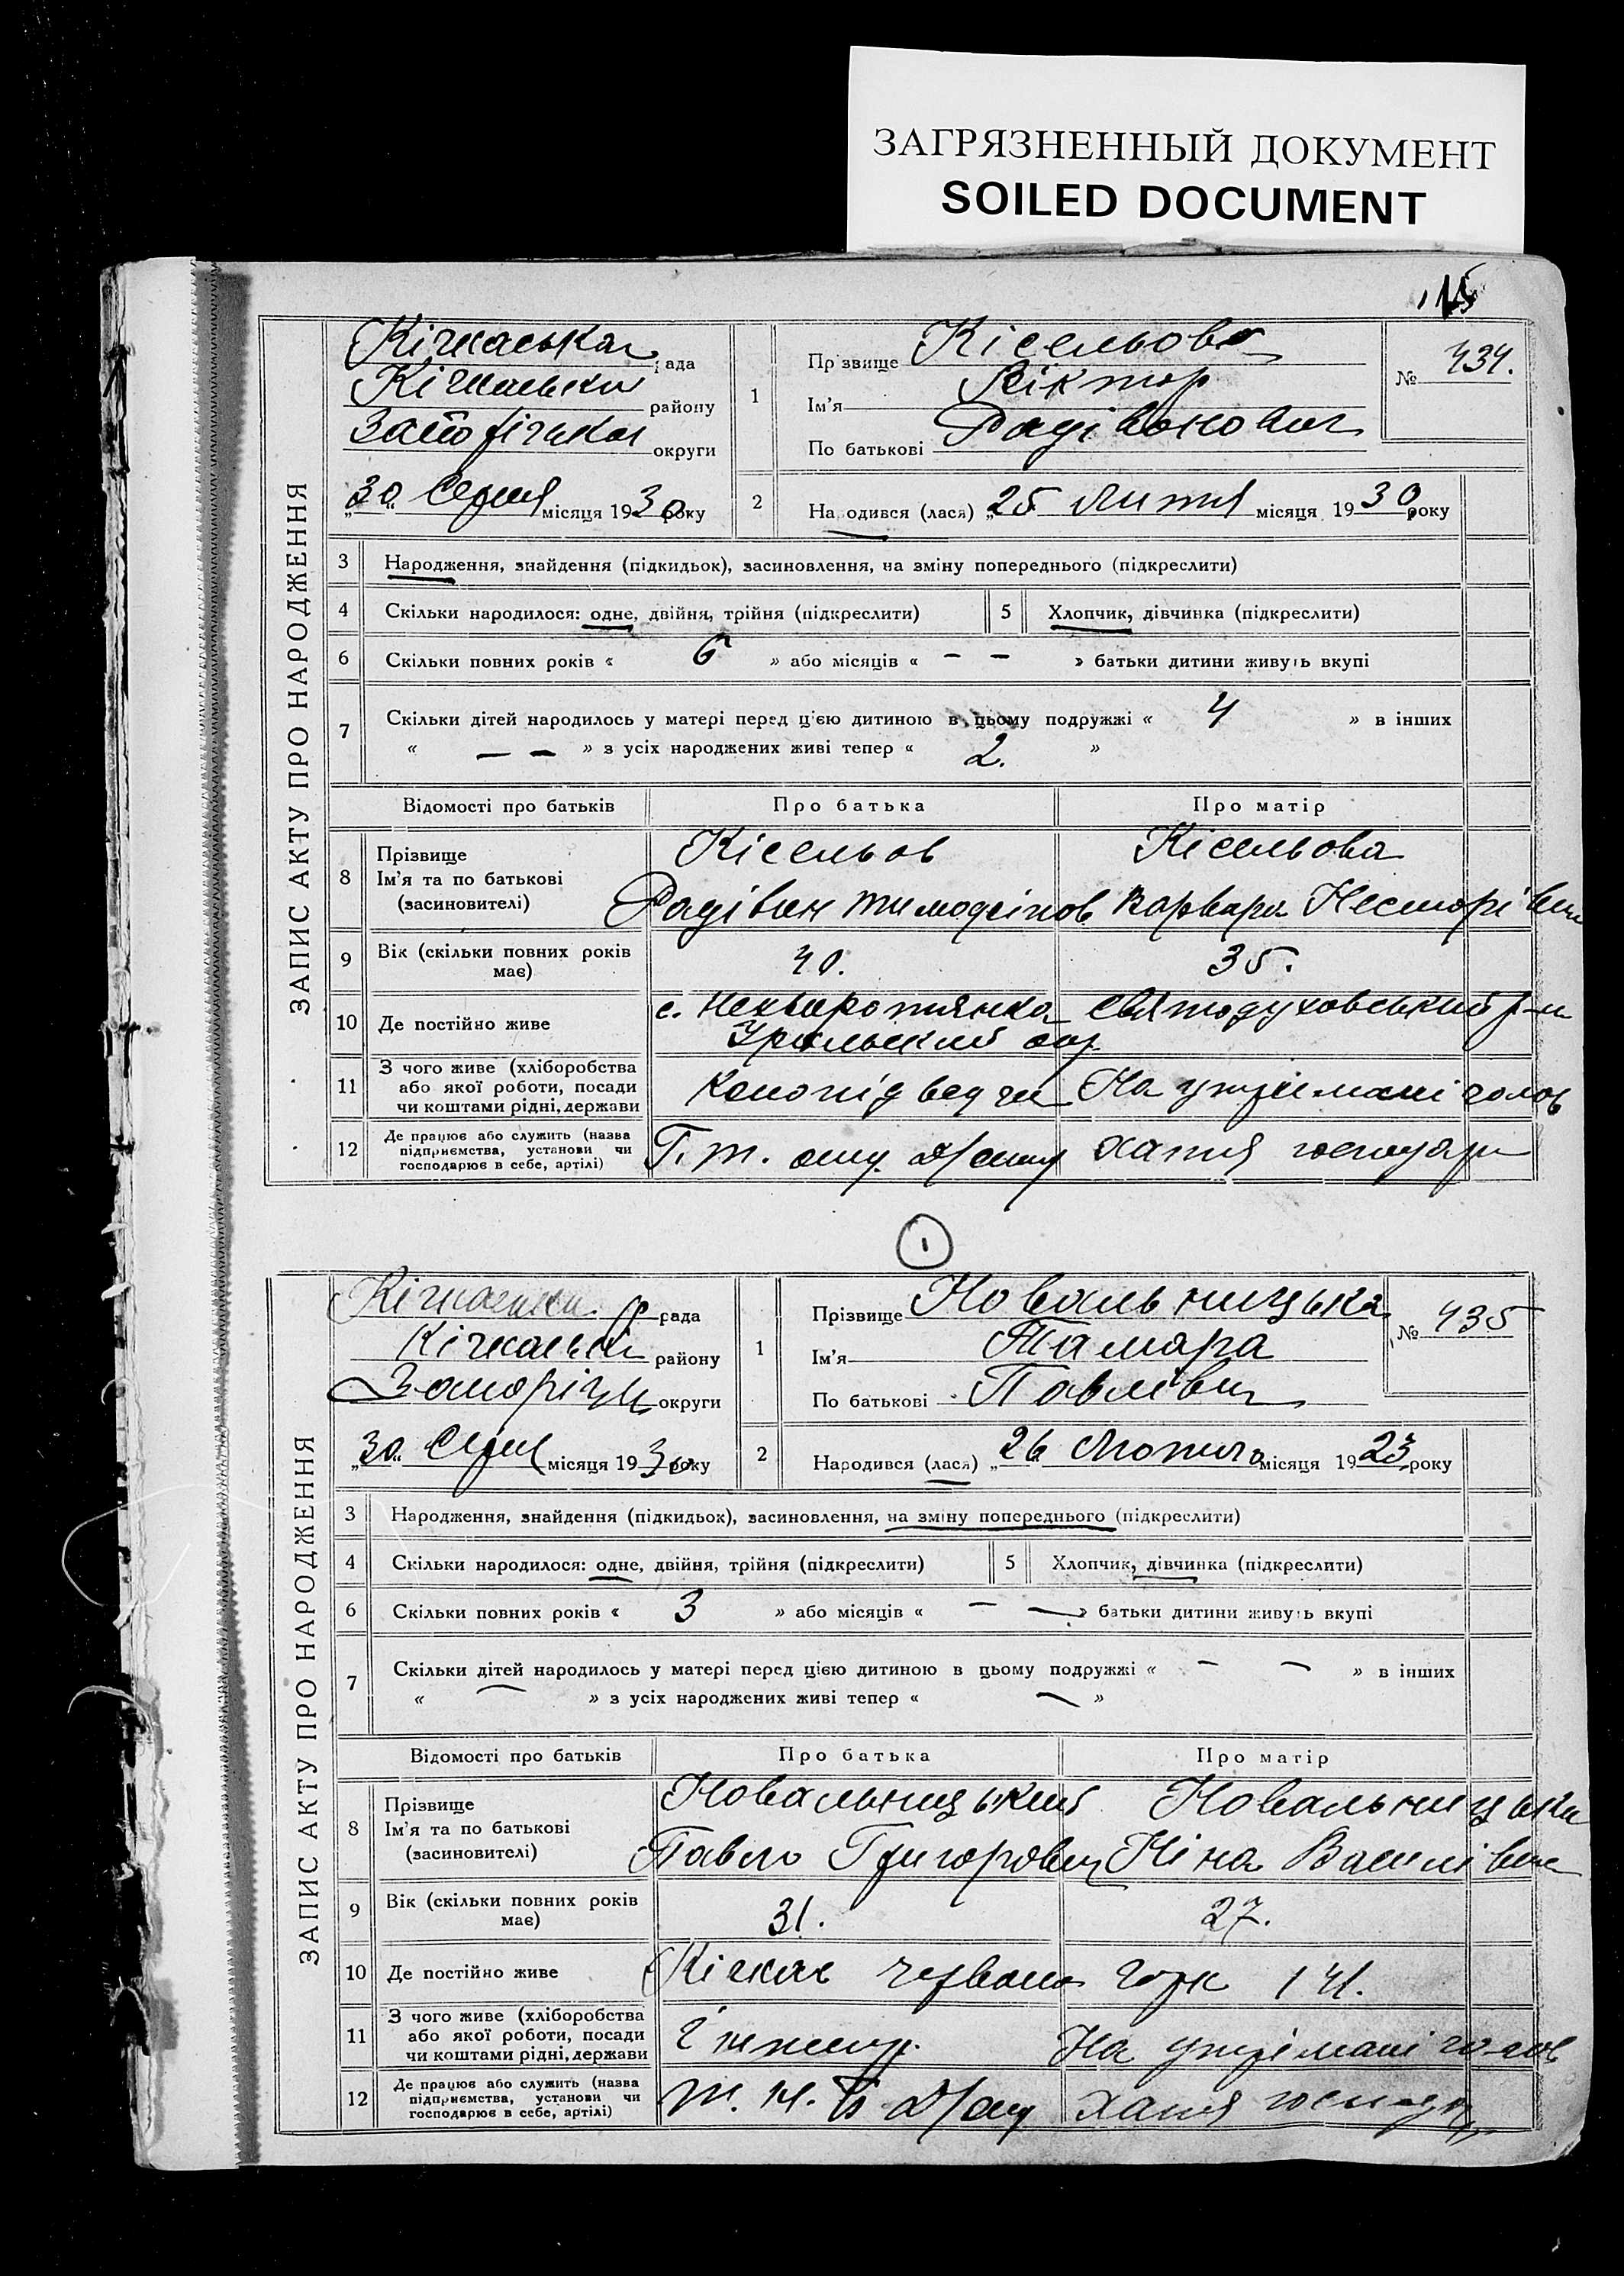 ЗАГРЯЗНЕННЫЙ ДОКУМЕНТ
SOILED DOCUMENT
115
ЗАПИС АКТУ ПРО НАРОДЖЕННЯ
Кічкаська рада
Кічкаськи району
Запорізька округи
„30“ Серпня місяця 1930 року
1
Прізвище Кісельова
Ім'я Віктор
По батькові Радівонович
№ 434.
2
Народився (лася) „25 Липня місяця 1930 року
3 Народження, знайдення (підкидьок), засиновлення, на зміну попереднього (підкреслити)
4 Скільки народилося: одне, двійня, трійня (підкреслити)
5 Хлопчик, дівчинка (підкреслити)
6 Скільки повних років « 6 » або місяців « – – » батьки дитини живуть вкупі
7 Скільки дітей народилось у матері перед цією дитиною в цьому подружжі « 4 » в інших
« – – » з усіх народжених живі тепер « 2. »
Відомості про батьків Про батька Про матір
8 Прізвище
Ім'я та по батькові
(засиновителі)
Кісельов
Радівон Тимофіїов
Кісельова
Варвара Несторівна
9 Вік (скільки повних років
має)
40.
35.
10 Де постійно живе
с. Святодуховський р-н
Уральский окр.
11 З чого живе (хліборобства
або якої роботи, посади
чи коштами рідні, держави
Конопідводчи
На утрімані голов
12 Де працює або служить (назва
підприємства, установи чи
господарює в себе, артілі)
Г. т. Д/буд
Хатня господар
1
ЗАПИС АКТУ ПРО НАРОДЖЕННЯ
Кічкаська рада
Кічкаській району
Запорізь округи
„30“ Серпня місяця 1930 року
1
Прізвище Новальницька
Ім'я Тамара
По батькові Павлівна
№ 435
2
Народився (лася) „26 Лютого місяця 1923 року
3 Народження, знайдення (підкидьок), засиновлення, на зміну попереднього (підкреслити)
4 Скільки народилося: одне, двійня, трійня (підкреслити)
5 Хлопчик, дівчинка (підкреслити)
6 Скільки повних років « 3 » або місяців « – – » батьки дитини живуть вкупі
7 Скільки дітей народилось у матері перед цією дитиною в цьому подружжі « – – » в інших
« – » з усіх народжених живі тепер « – »
Відомості про батьків Про батька Про матір
8 Прізвище
Ім'я та по батькові
(засиновителі)
Новальницький
Павло Григорович
Новальницька
Ніна Василівна
9 Вік (скільки повних років
має)
31.
27.
10 Де постійно живе
Кічкас червоно горк 141.
11 З чого живе (хліборобства
або якої роботи, посади
чи коштами рідні, держави
Інженер.
На утрімані голов
12 Де працює або служить (назва
підприємства, установи чи
господарює в себе, артілі)
Д/буд
Хатня господар